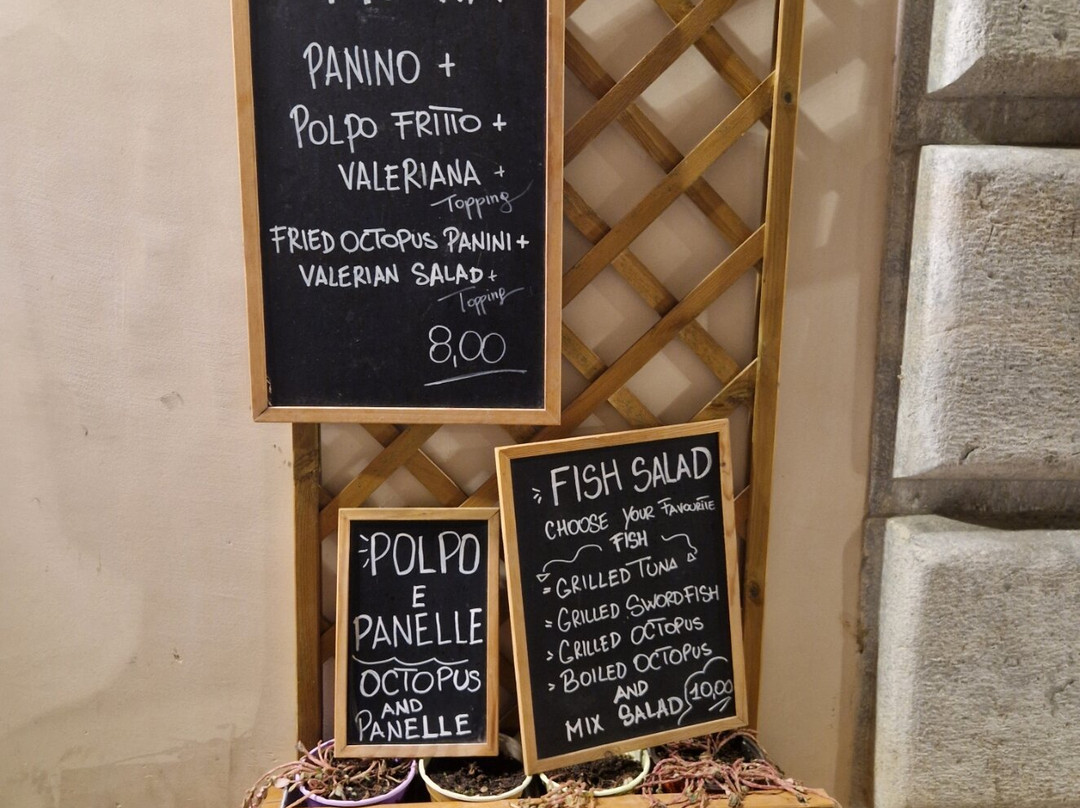 PANINO +
POLPO FRITTO +
VALERIANA +
Topping
FRIED OCTOPUS PANINI +
VALERIAN SALAD +
Topping
8,00
POLPO
E
PANELLE
OCTOPUS
AND
PANELLE
FISH SALAD
CHOOSE YOUR FAVOURITE
FISH
GRILLED TUNA
GRILLED SWORDFISH
GRILLED OCTOPUS
BOILED OCTOPUS
AND
MIX SALAD 10,00